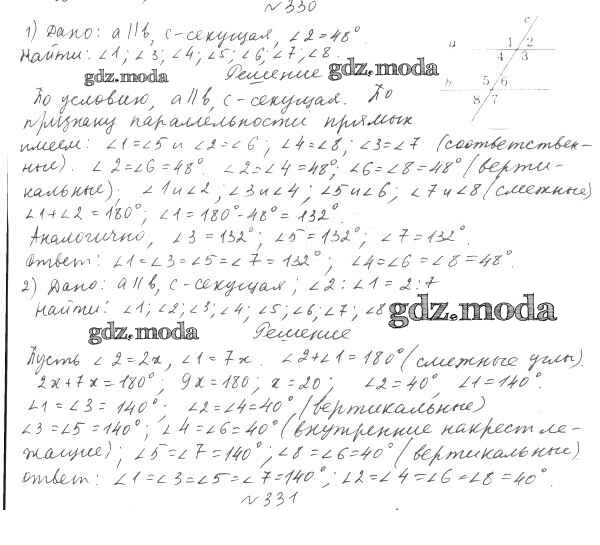 №330
1) Дано: a∥b, c-секущая, ∠2=48°.
Найти: ∠1; ∠3; ∠4; ∠5; ∠6; ∠7; ∠8.
gdz.moda
Решение
gdz.moda
c
a
1 2
4 3
b
5 6
8 7
По условию, a∥b, c-секущая. По
признаку параллельности прямых
имеем: ∠1=∠5 и ∠2=∠6, ∠4=∠8; ∠3=∠7 (соответствен-
ные). ∠2=∠6=48°. ∠2=∠4=48°; ∠6=∠8=48° (верти-
кальные); ∠1 и ∠2, ∠3 и ∠4; ∠5 и ∠6; ∠7 и ∠8 (смежные)
∠1+∠2=180°; ∠1=180°-48°=132°.
Аналогично, ∠3=132°; ∠5=132°; ∠7=132°.
Ответ: ∠1=∠3=∠5=∠7=132°; ∠4=∠6=∠8=48°.
2) Дано: a∥b, c-секущая; ∠2:∠1=2:7
Найти: ∠1; ∠2; ∠3; ∠4; ∠5; ∠6; ∠7; ∠8
gdz.moda
gdz.moda
Решение
Пусть ∠2=2x, ∠1=7x. ∠2+∠1=180° (смежные углы).
2x+7x=180°; 9x=180; x=20; ∠2=40°, ∠1=140°.
∠1=∠3=140°; ∠2=∠4=40° (вертикальные)
∠3=∠5=140°; ∠4=∠6=40° (внутренние накрест ле-
жащие); ∠5=∠7=140°; ∠8=∠6=40° (вертикальные)
Ответ: ∠1=∠3=∠5=∠7=140°; ∠2=∠4=∠6=∠8=40°.
№331